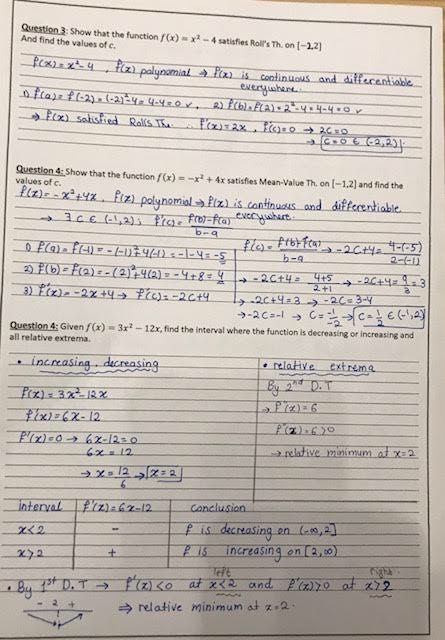 Question 3: Show that the function f(x) = x² − 4 satisfies Roll's Th. on [−1,2]
And find the values of c.
f(x) = x²-4 , f(x) polynomial → f(x) is continuous and differentiable
everywhere.
1) f(a) = f(-2) = (-2)²-4 = 4-4 = 0 ✓, 2) f(b) = f(2) = 2²-4 = 4-4 = 0 ✓
→ f(x) satisfied Roll's Th. ∴ f'(x) = 2x , f'(c) = 0 → 2c = 0
→ c = 0 ∈ (-2,2)
Question 4: Show that the function f(x) = −x² + 4x satisfies Mean-Value Th. on [−1,2] and find the
values of c.
f(x) = -x²+4x, f(x) polynomial → f(x) is continuous and differentiable
→ ∃ c ∈ (-1,2); f'(c) = f(b)-f(a) / b-a everywhere.
1) f(a) = f(-1) = -(-1)²+4(-1) = -1-4 = -5
2) f(b) = f(2) = -(2)²+4(2) = -4+8 = 4
3) f'(x) = -2x+4 → f'(c) = -2c+4
f'(c) = f(b)-f(a) / b-a → -2c+4 = 4-(-5) / 2-(-1)
→ -2c+4 = 4+5 / 2+1 → -2c+4 = 9/3 = 3
→ -2c+4 = 3 → -2c = 3-4
→ -2c = -1 → c = -1/-2 → c = 1/2 ∈ (-1,2)
Question 4: Given f(x) = 3x² − 12x, find the interval where the function is decreasing or increasing and
all relative extrema.
• increasing, decreasing
f(x) = 3x²-12x
f'(x) = 6x-12
f'(x) = 0 → 6x-12 = 0
6x = 12
→ x = 12/6 → x = 2
• relative extrema
By 2nd D.T
→ f''(x) = 6
f''(2) = 6 > 0
→ relative minimum at x=2
interval f'(x) = 6x-12 conclusion
x<2 - f is decreasing on (-∞,2]
x>2 + f is increasing on [2,∞)
left right
• By 1st D.T → f'(x) < 0 at x<2 and f'(x) > 0 at x>2
- 2 +
⇒ relative minimum at x=2.